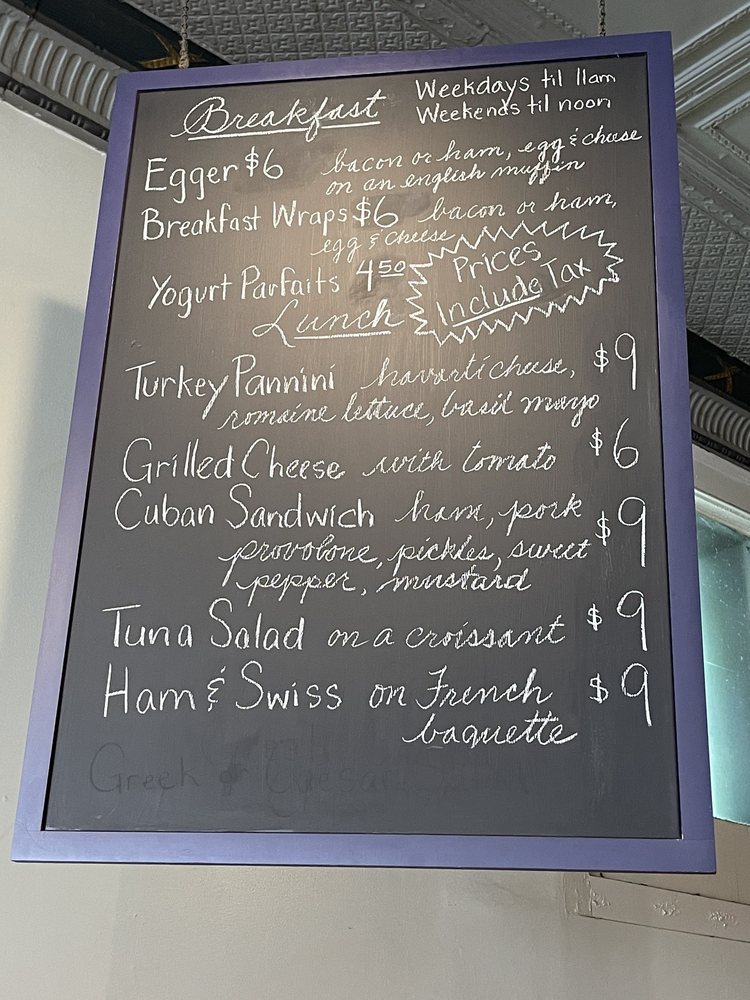 Breakfast Weekdays til 11am
Weekends til noon
Egger $6 bacon or ham, egg & cheese
on an english muffin
Breakfast Wraps $6 bacon or ham,
egg & cheese
Yogurt Parfaits 4.50
Prices
Include Tax
Lunch
Turkey Pannini havarti cheese, $9
romaine lettuce, basil mayo
Grilled Cheese with tomato $6
Cuban Sandwich ham, pork $9
provolone, pickles, sweet
pepper, mustard
Tuna Salad on a croissant $9
Ham & Swiss on French $9
baguette
Greek or Caesar